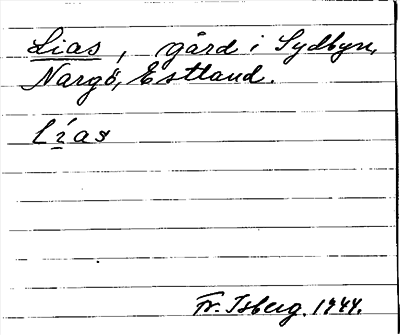 Lias, gård i Sydbyn,
Nargö, Estland.
lías
Fr. Isberg. 1944.